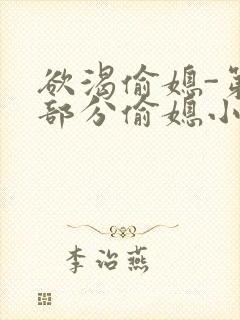 欲渴偷媳-第
部分偷媳小
李治燕